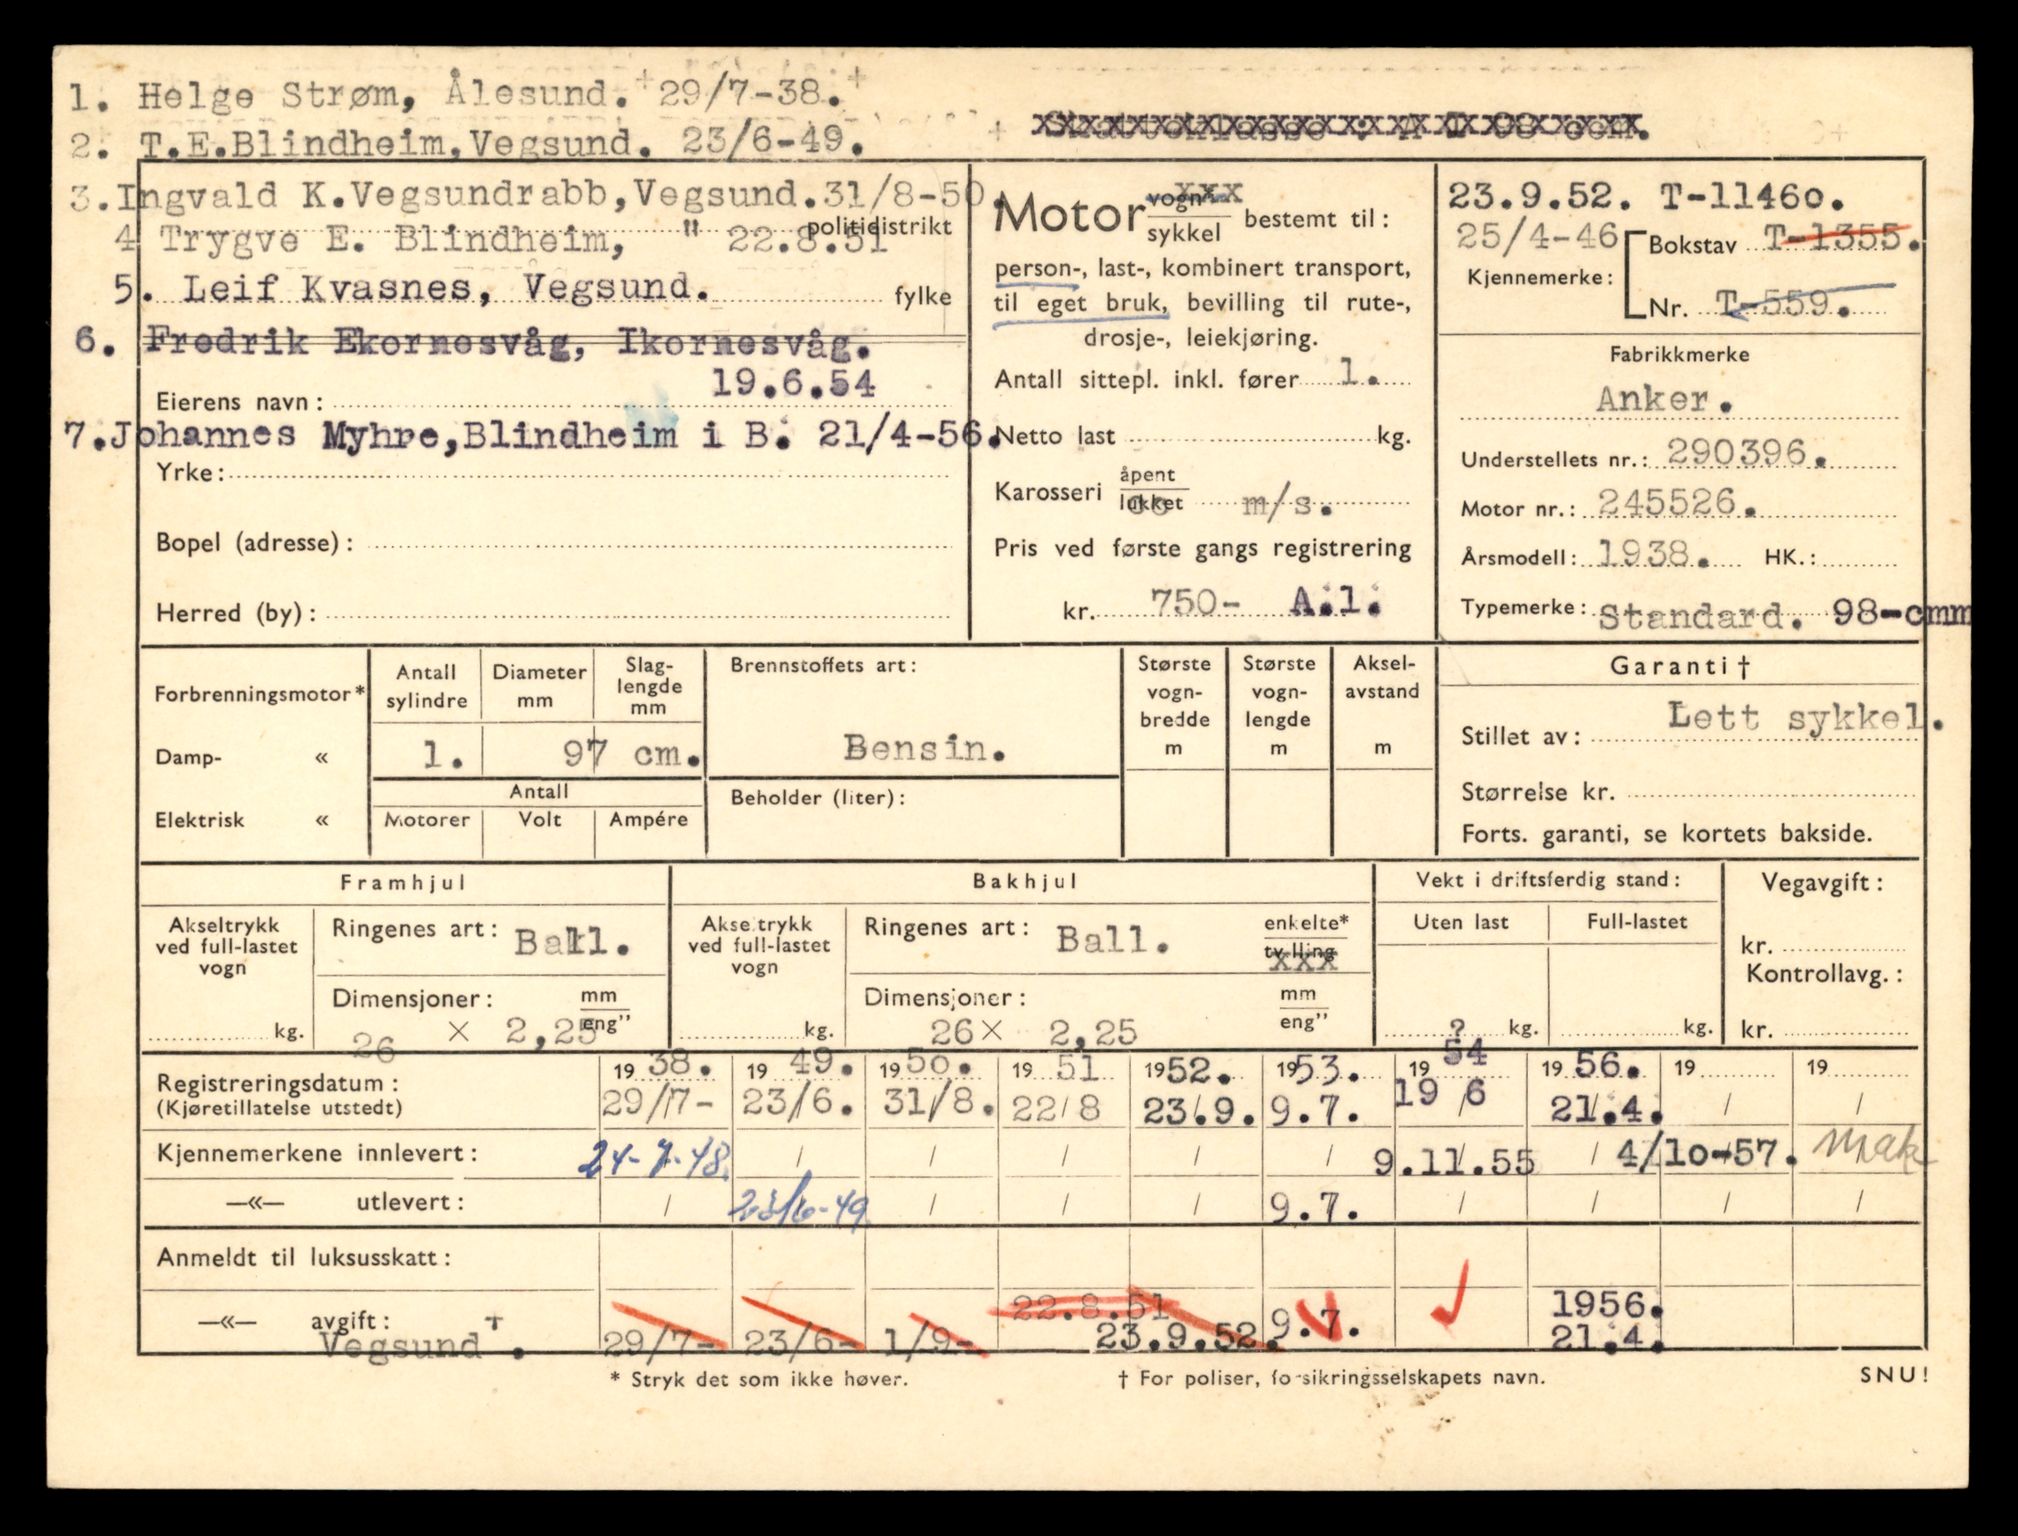 1. Helge Strøm, Ålesund. 29/7-38.
2. T.E.Blindheim, Vegsund. 23/6-49.
3. Ingvald K.Vegsundrabb, Vegsund. 31/8-50.
politidistrikt
4 Trygve E. Blindheim, " 22.8.51
5. Leif Kvasnes, Vegsund.
fylke
6. Fredrik Ekornesvåg, Ikornesvåg.
19.6.54
Eierens navn:
7. Johannes Myhre, Blindheim i B. 21/4-56.
Yrke:
Bopel (adresse):
Herred (by):
Motor vogn xxx
sykkel bestemt til:
person-, last-, kombinert transport,
til eget bruk, bevilling til rute-,
drosje-, leiekjøring.
Antall sittepl. inkl. fører 1.
Netto last kg.
Karosseri åpent
lukket m/s.
Pris ved første gangs registrering
kr. 750- A.1.
23.9.52. T-11460.
25/4-46 Bokstav T-1355.
Kjennemerke:
Nr. T-559.
Fabrikkmerke
Anker.
Understellets nr.: 290396.
Motor nr.: 245526.
Årsmodell: 1938. HK.:
Typemerke: Standard. 98-cmm
Forbrenningsmotor*
Damp- «
Elektrisk «
Antall sylindre
Diameter mm
Slag-lengde mm
1. 97 cm.
Antall
Motorer Volt Ampére
Brennstoffets art:
Bensin.
Beholder (liter):
Største vogn-bredde m
Største vogn-lengde m
Aksel-avstand m
Garanti †
Lett sykkel.
Stillet av:
Størrelse kr.
Forts. garanti, se kortets bakside.
Framhjul
Akseltrykk
ved full-lastet
vogn
kg.
Ringenes art: Ball.
Dimensjoner: mm
eng"
26 × 2,25
Bakhjul
Akseltrykk
ved full-lastet
vogn
kg.
Ringenes art: Ball.
enkelte*
tvilling
xxx
Dimensjoner: mm
eng"
26 × 2,25
Vekt i driftsferdig stand:
Uten last Full-lastet
? kg. kg.
Vegavgift:
kr.
Kontrollavg.:
kr.
Registreringsdatum: 19 38. 19 49. 19 50. 19 51 19 52. 19 53. 19 54 19 56. 19 19
(Kjøretillatelse utstedt) 29/7- 23/6. 31/8. 22/8 23.9. 9.7. 19/6 21.4. / /
Kjennemerkene innlevert: 24-7-48. / / / / / 9.11.55 / 4/10-57. Mak
—«— utlevert: / 23/6-49 / / / 9.7. / / / /
Anmeldt til luksusskatt:
—«— avgift: +
Vegsund.
29/7- 23/6- 1/9- 22.8.51 23.9.52. 9.7. 1956.
21.4.
* Stryk det som ikke høver.
† For poliser, forsikringsselskapets navn.
SNU!